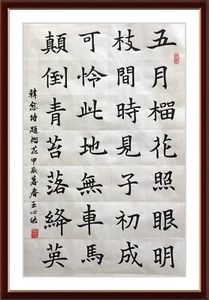 五月榴花照眼明
枝間時見子初成
可怜此地無車馬
顛倒青苔落絳英
韓愈詩題榴花甲辰暮春王心